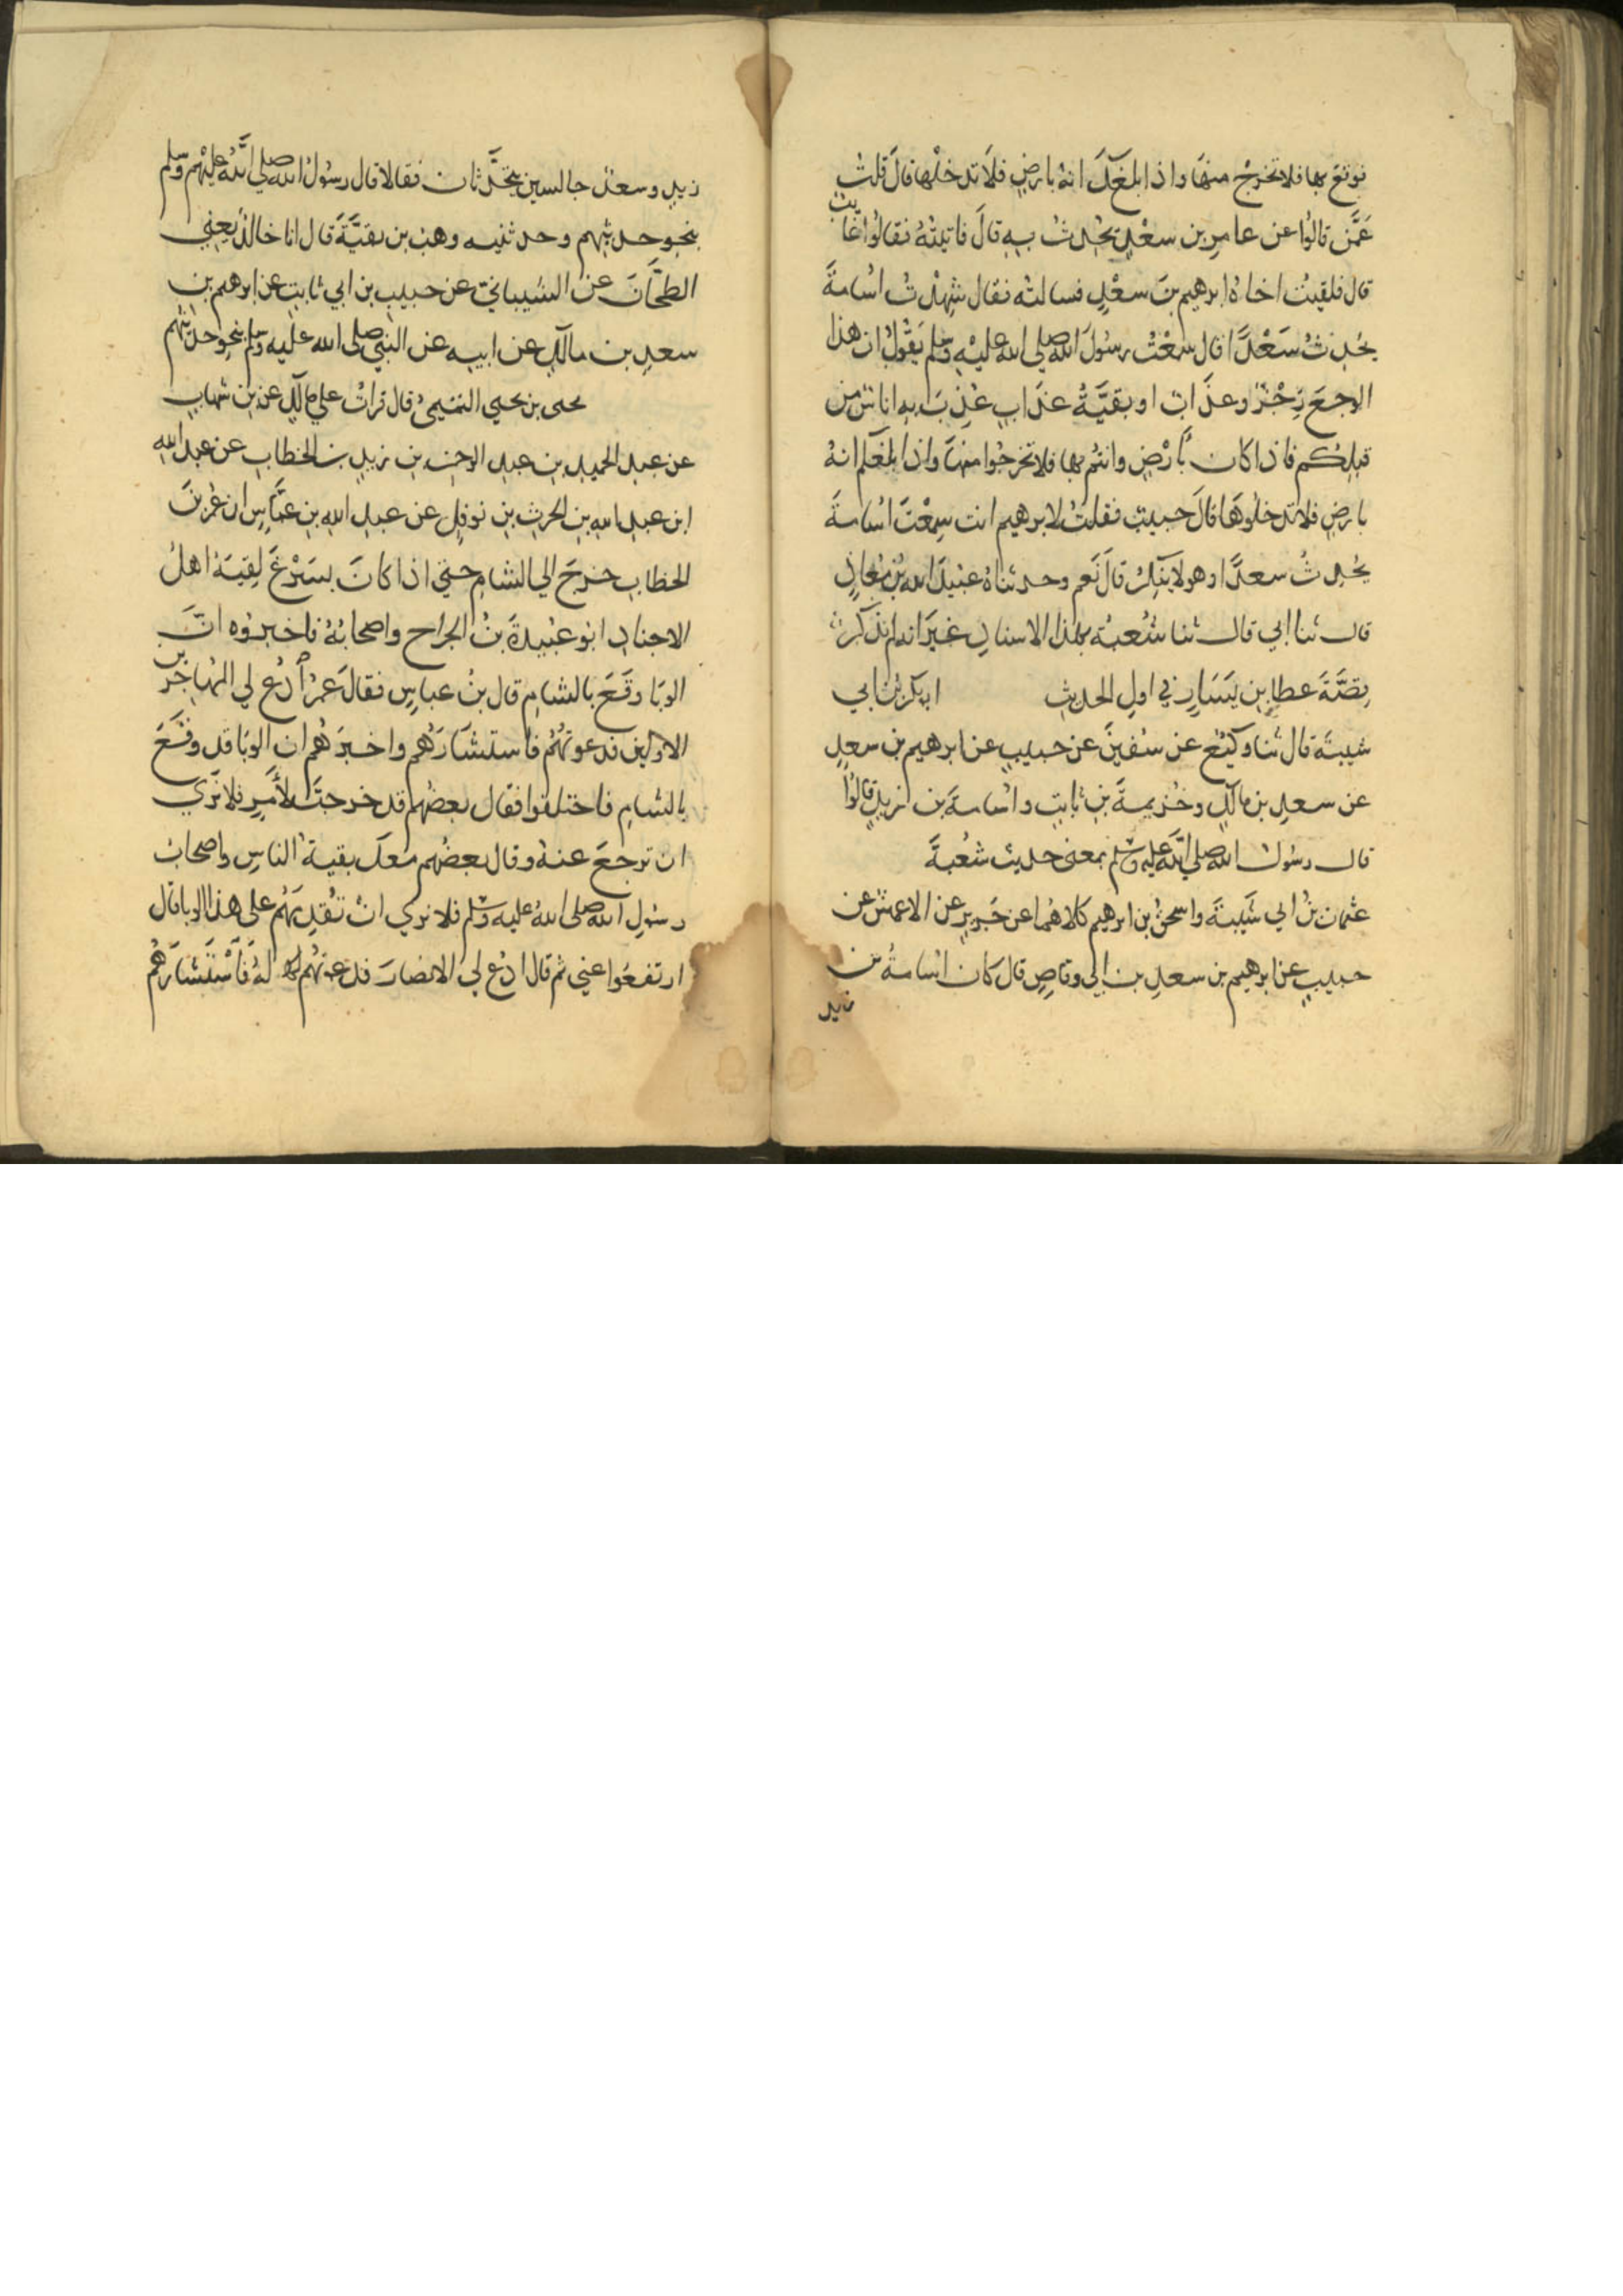 فوقع بها فلا تخرج منها واذا بلغك انه بارض فلا تدخلها قال قلت
عمن قالوا عن عامر بن سعد يحدث به قال فاتيته فقالوا غايب
قال فلقيت اخاه ابرهيم بن سعد فسالته فقال شهدت اسامة
يحدث سعدا قال سمعت رسول الله صلى الله عليه وسلم يقول ان هذا
الوجع رجز وعذاب او بقية عذاب عذب به اناس من
قبلكم فاذا كان بارض وانتم بها فلا تخرجوا منها واذا بلغكم انه
بارض فلا تدخلوها قال حبيب فقلت لابرهيم انت سمعت اسامة
يحدث سعدا وهو لا ينكر قال نعم وحدثناه عبيد الله بن معاذ
قال ثنا ابي قال ثنا شعبة بهذا الاسناد غير انه لم يذكر
قصة عطا بن يسار في اول الحديث ابو بكر بن ابي
شيبة قال ثنا وكيع عن سفين عن حبيب عن ابرهيم بن سعد
عن سعد بن مالك وخزيمة بن ثابت واسامة بن زيد قالوا
قال رسول الله صلى الله عليه وسلم بمعنى حديث شعبة
عثمان بن ابي شيبة واسحق بن ابرهيم كلاهما عن جرير عن الاعمش عن
حبيب عن ابرهيم بن سعد بن ابي وقاص قال كان اسامة بن
زيد
زيد وسعد جالسين يتحدثان فقالا قال رسول الله صلى الله عليه وسلم
بنحو حديثهم وحدثنيه وهب بن بقية قال انا خالد يعني
الطحان عن الشيباني عن حبيب بن ابي ثابت عن ابرهيم بن
سعد بن مالك عن ابيه عن النبي صلى الله عليه وسلم بنحو حديثهم
يحيى بن يحيي التميمي قال قرات على مالك عن بن شهاب
عن عبد الحميد بن عبد الرحمن بن زيد بن الخطاب عن عبد الله
ابن عبد الله بن الحرث بن نوفل عن عبد الله بن عباس ان عمر بن
الخطاب خرج الي الشام حتي اذا كان بسرغ لقيه اهل
الاجناد ابو عبيدة بن الجراح واصحابه فاخبروه ان
الوبا وقع بالشام قال بن عباس فقال عمر ادع لي المهاجرين
الاولين فدعوتهم فاستشارهم واخبرهم ان الوبا قد وقع
بالشام فاختلفوا فقال بعضهم قد خرجت لامر فلا نري
ان ترجع عنه وقال بعضهم معك بقية الناس واصحاب
رسول الله صلى الله عليه وسلم فلا نري ان تقدمهم على هذا الوبا قال
ارتفعوا عني ثم قال ادع لي الانصار فدعوتهم له فاستشارهم